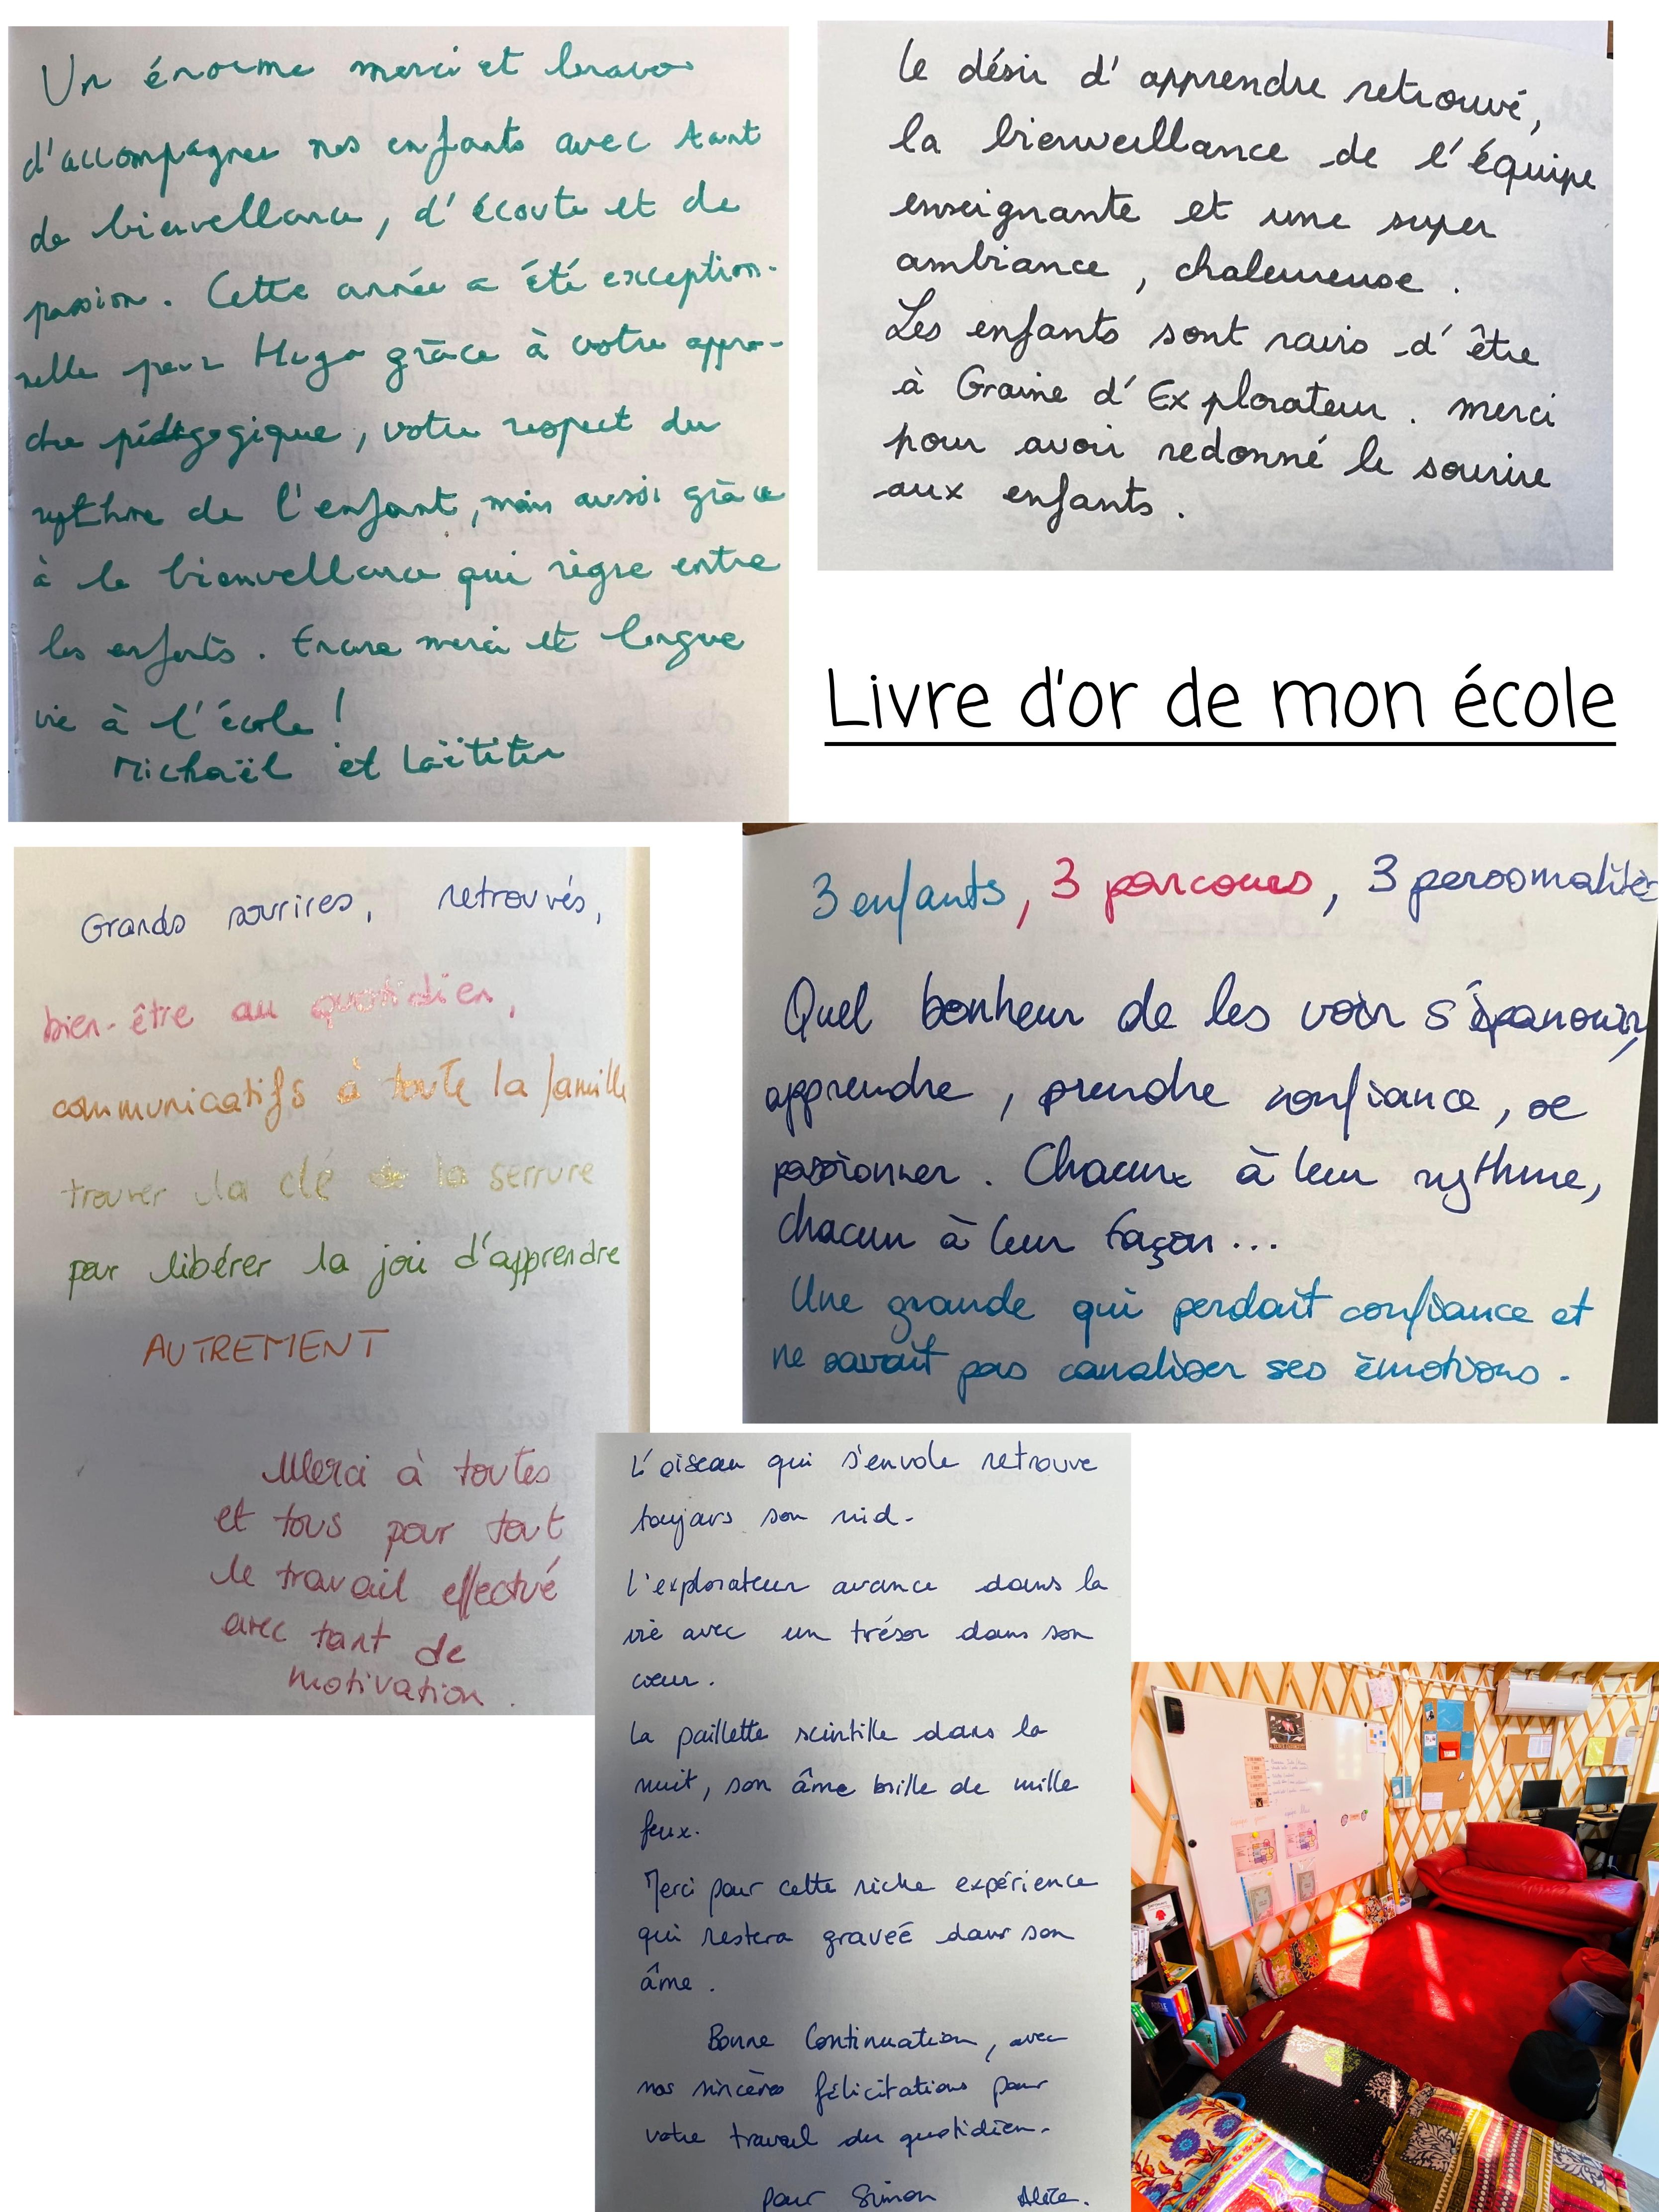 Un énorme merci et bravo
d'accompagner nos enfants avec tant
de bienvellance, d'écoute et de
passion. Cette année a été exception-
nelle pour Hugo grâce à votre appro-
che pédagogique, votre respect du
rythme de l'enfant, mais aussi grâce
à la bienvellance qui règne entre
les enfants. Encore merci et longue
vie à l'école !
Michaël et Laëtitia
Le désir d'apprendre retrouvé,
la bienveillance de l'équipe
enseignante et une super
ambiance, chaleureuse.
Les enfants sont ravis d'être
à Graine d'Explorateur. Merci
pour avoir redonné le sourire
aux enfants.
Livre d'or de mon école
Grands sourires, retrouvés,
bien-être au quotidien,
communicatifs à toute la famille
trouver la clé de la serrure
pour libérer la joie d'apprendre
AUTREMENT
Merci à toutes
et tous pour tout
le travail effectué
avec tant de
motivation.
3 enfants, 3 parcours, 3 personnalités
Quel bonheur de les voir s'épanouir,
apprendre, prendre confiance, se
passionner. Chacun à leur rythme,
chacun à leur façon...
Une grande qui perdait confiance et
ne savait pas canaliser ses émotions.
L'oiseau qui s'envole retrouve
toujours son nid.
L'explorateur avance dans la
vie avec un trésor dans son
cœur.
La paillette scintille dans la
nuit, son âme brille de mille
feux.
Merci pour cette riche expérience
qui restera gravée dans son
âme.
Bonne Continuation, avec
nos sincères félicitations pour
votre travail du quotidien.
pour Simon